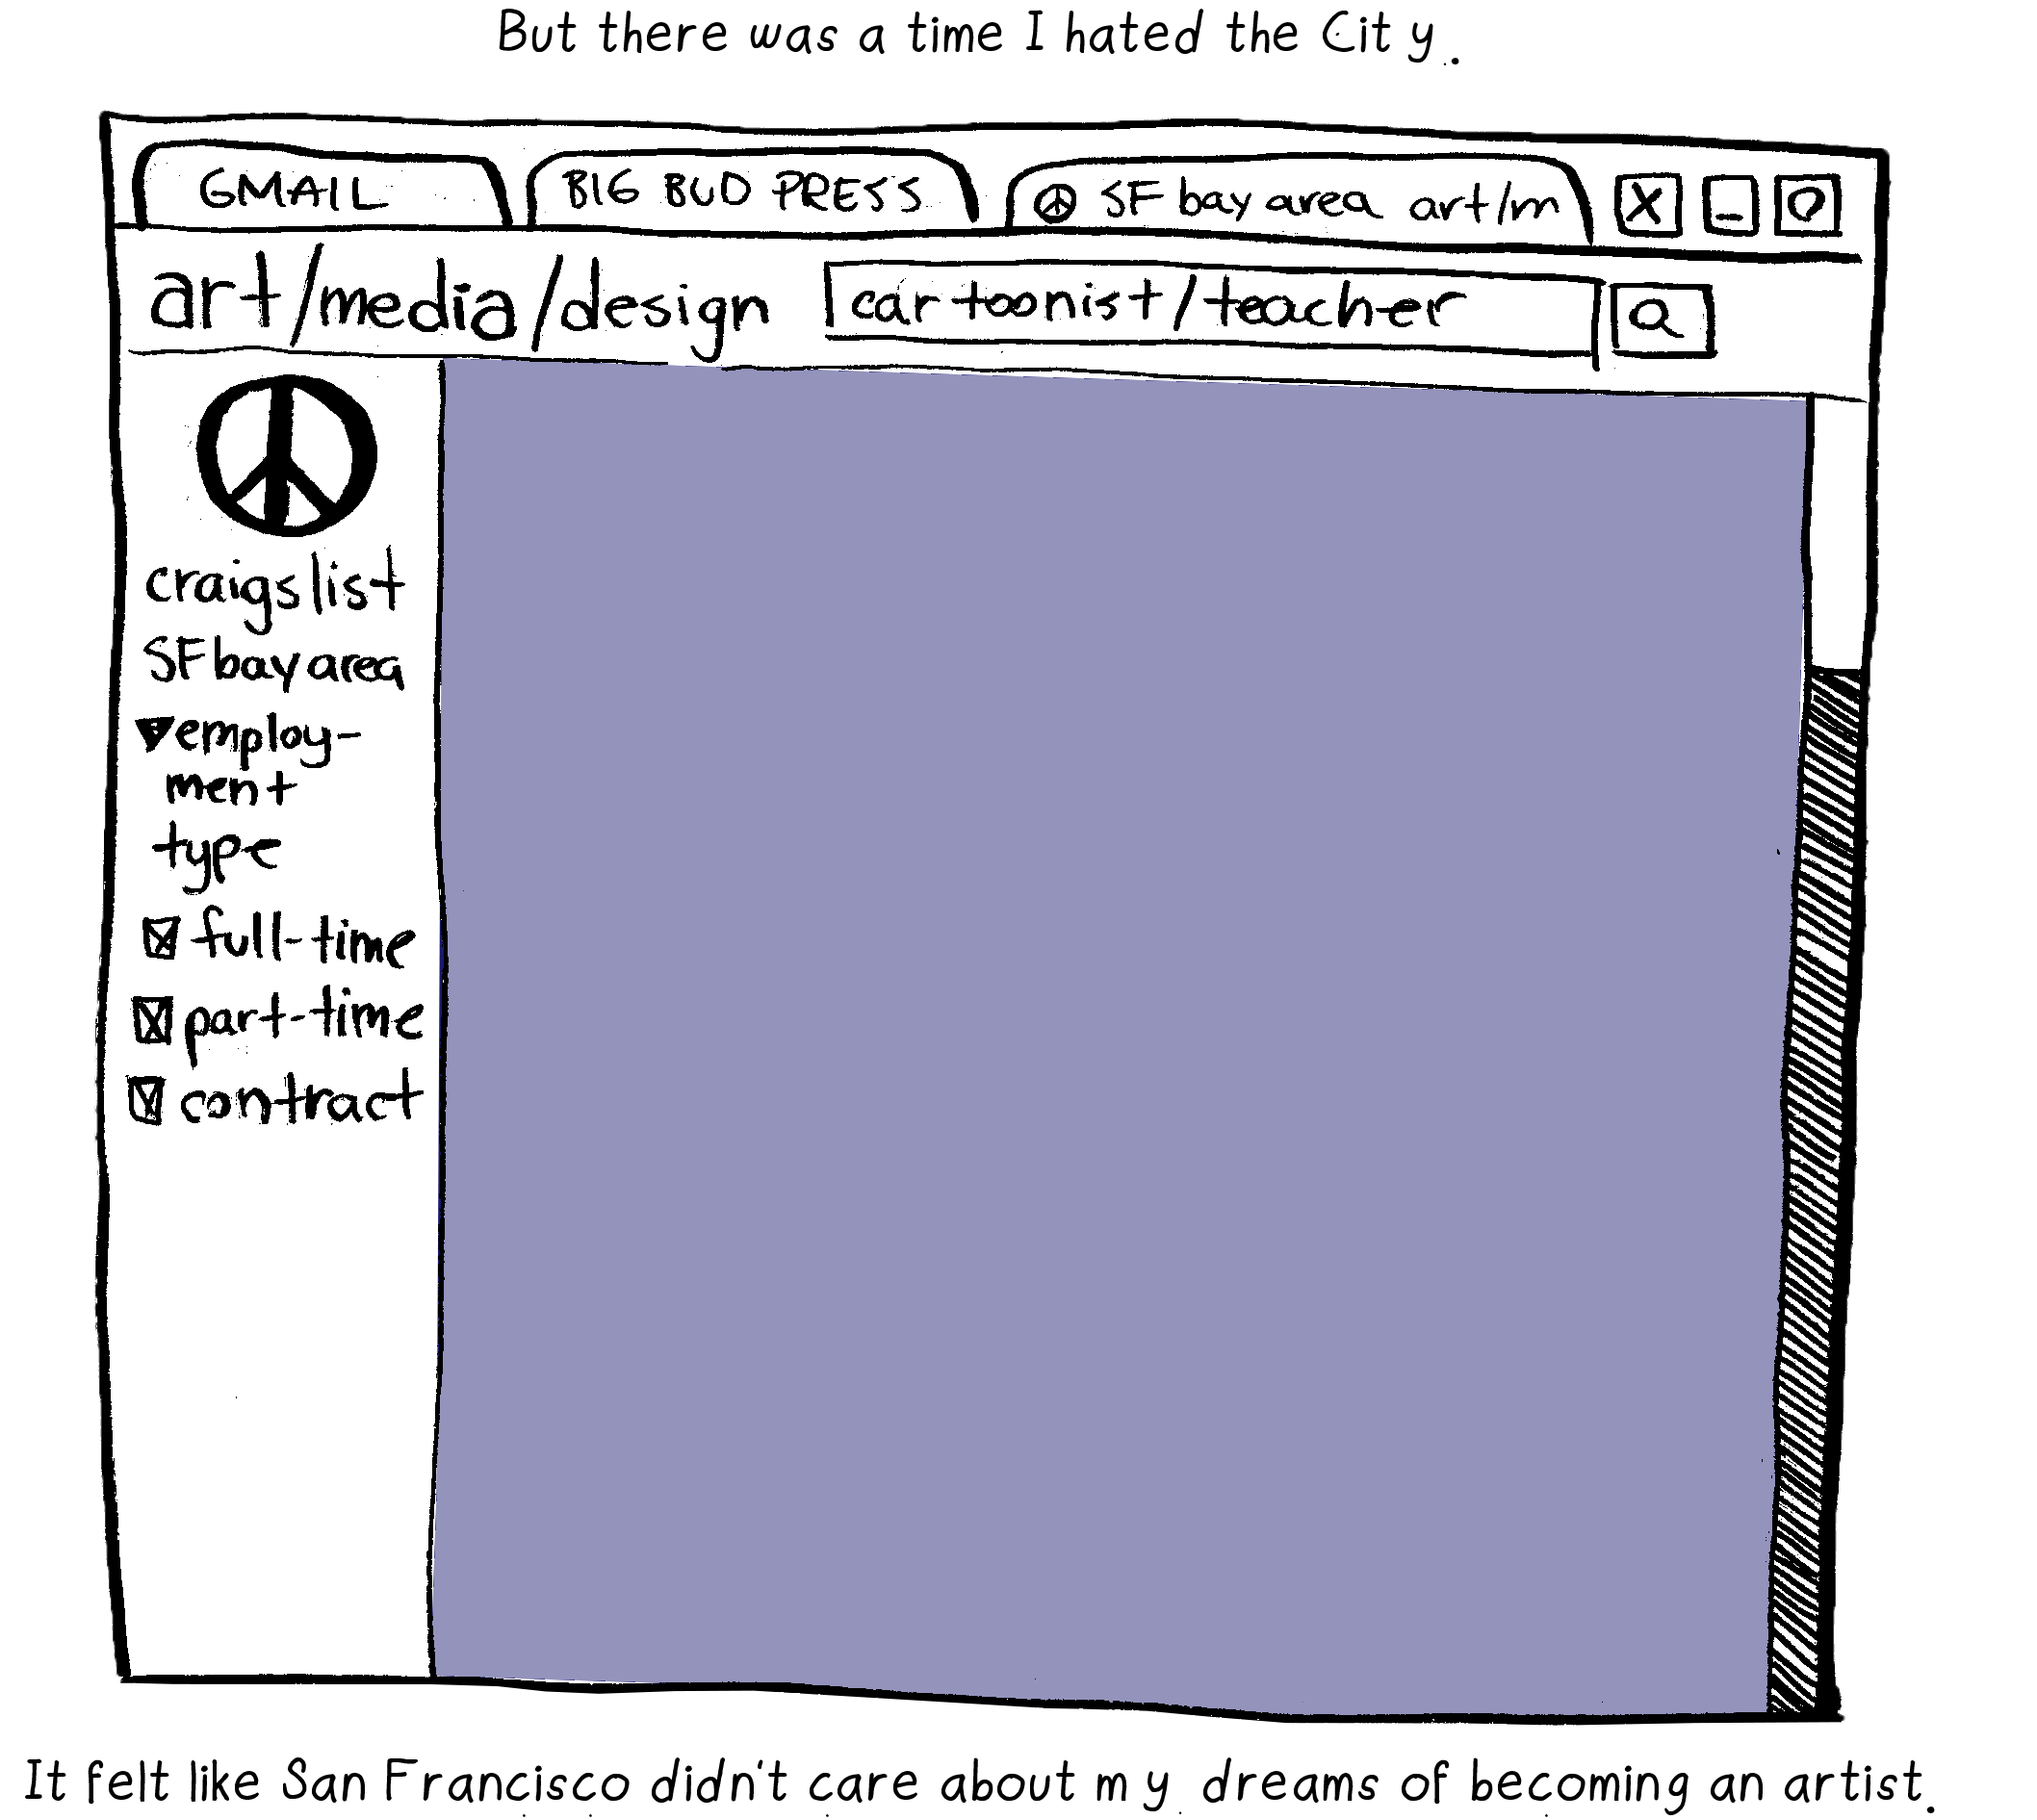 But there was a time I hated the City.
GMAIL
BIG BUD PRESS
SF bay area art/m
X
art/media/design
cartoonist/teacher
craigslist
SF bay area
employ-
ment
type
full-time
part-time
contract
It felt like San Francisco didn't care about my dreams of becoming an artist.